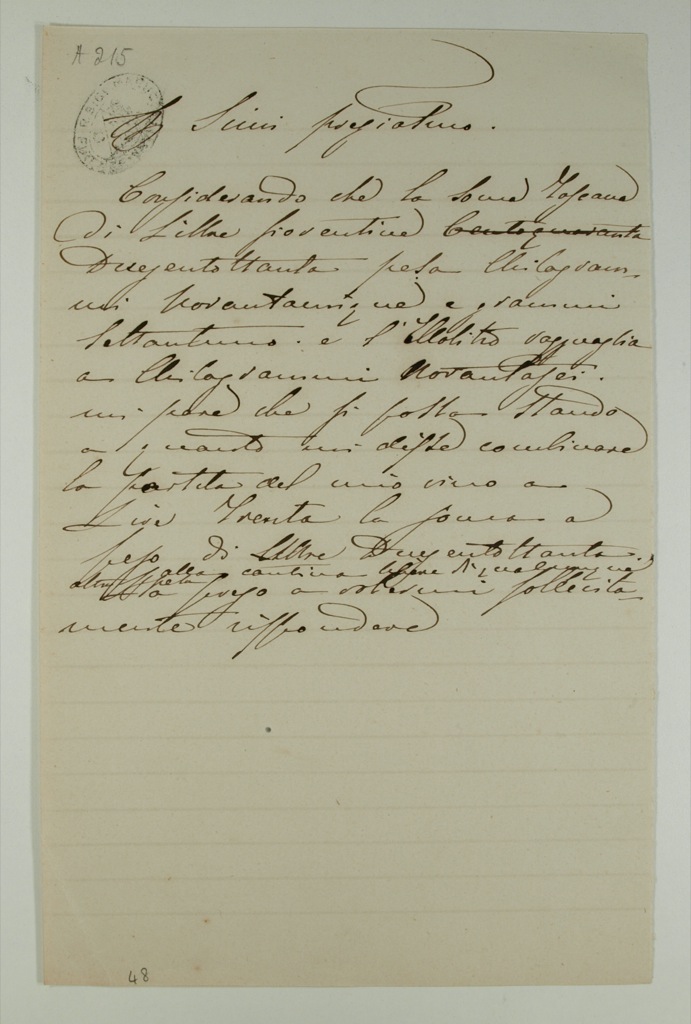 A 215
Simi pregiatmo.
Considerando che la Soma Toscana
di Libbre fiorentine Centoquaranta
Dugentottanta pesa Chilogram-
mi Novantacinque e grammi
Settantuno. e l'Ettolitro ragguaglia
a Chilogrammi Novantasei.
mi pare che si possa stando
a quanto mi disse combinare
la partita del mio vino a
Lire Trenta la soma a
peso di Libbre Dugentottanta.
alla cantina libere di qualunque
altra spesa
La prego a volermi sollecita-
mente rispondere
48